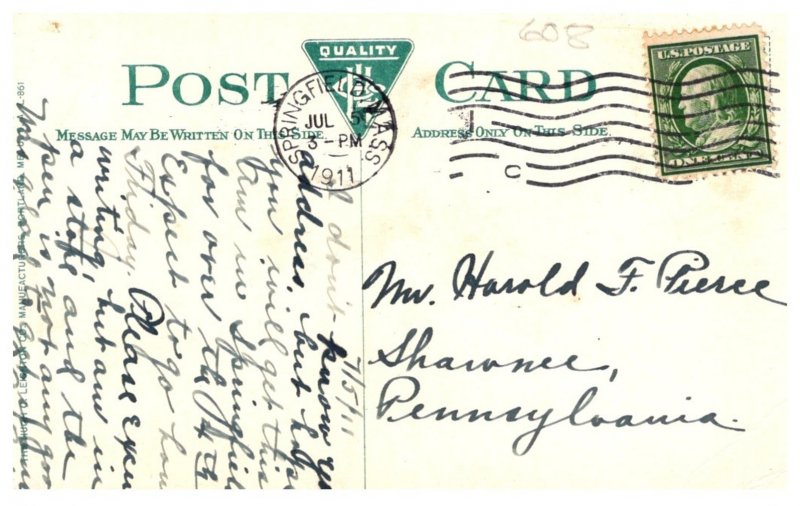 608
QUALITY
U.S.POSTAGE
ONE CENT
POST CARD
MESSAGE MAY BE WRITTEN ON THIS SIDE.
ADDRESS ONLY ON THIS SIDE.
SPRINGFIELD, MASS.
JUL 5
3-PM
1911
C
7/5/11
I don't know
address, but hope
you will get this.
Am in Springfield
for over the 4th
Expect to go
Friday. Please
writing, but am in
a store and the
pen is not any
Mr. Harold F. Pierce
Shawnee,
Pennsylvania.
LEIGHTON CO., MANUFACTURERS, PORTLAND, ME.